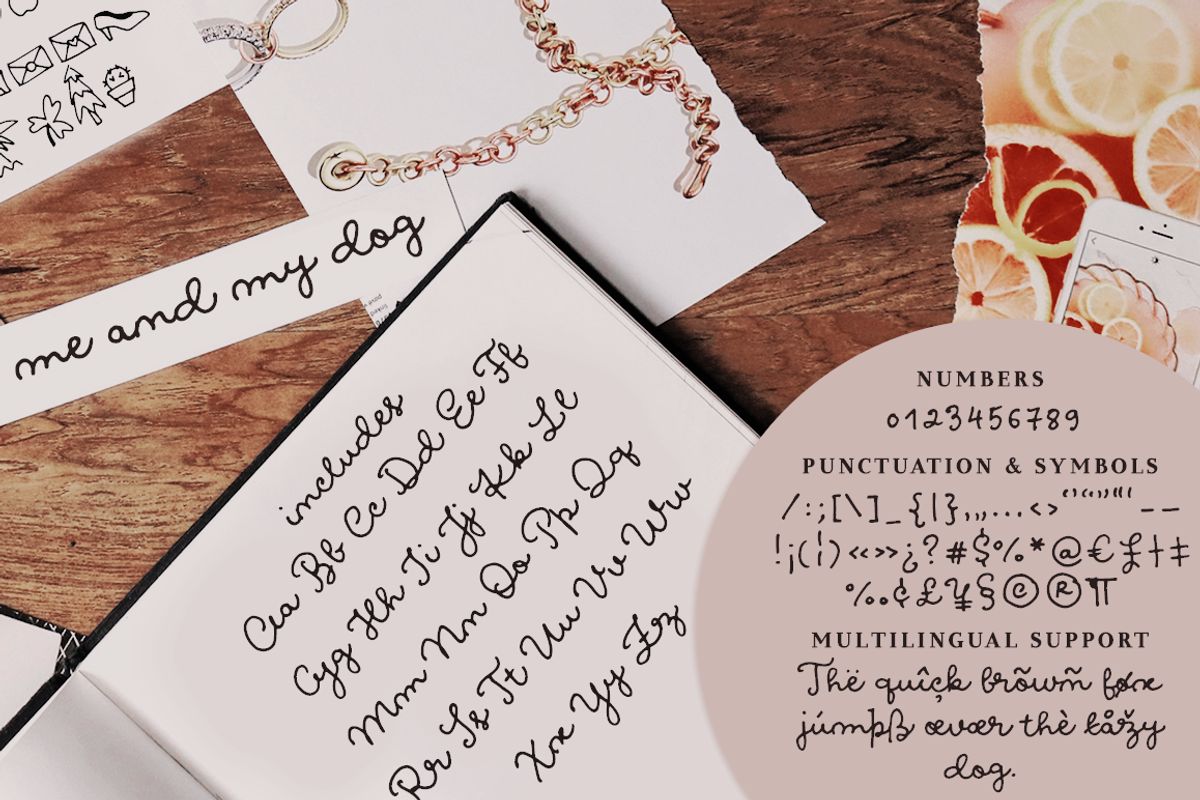 me and my dog
includes
Aa Bb Cc Dd Ee Ff
Gg Hh Ii Jj Kk Ll
Mm Nn Oo Pp Qq
Rr Ss Tt Uu Vv Ww
Xx Yy Zz
NUMBERS
0123456789
PUNCTUATION & SYMBOLS
/:;[\]_{|},„…<>‘’“”"' --
!¡(¦)«»¿?#$%*@€₤†‡
‰¢£¥§©®¶
MULTILINGUAL SUPPORT
Thë quîçk brõwñ føx
júmpß œvær thè låžy
dog.